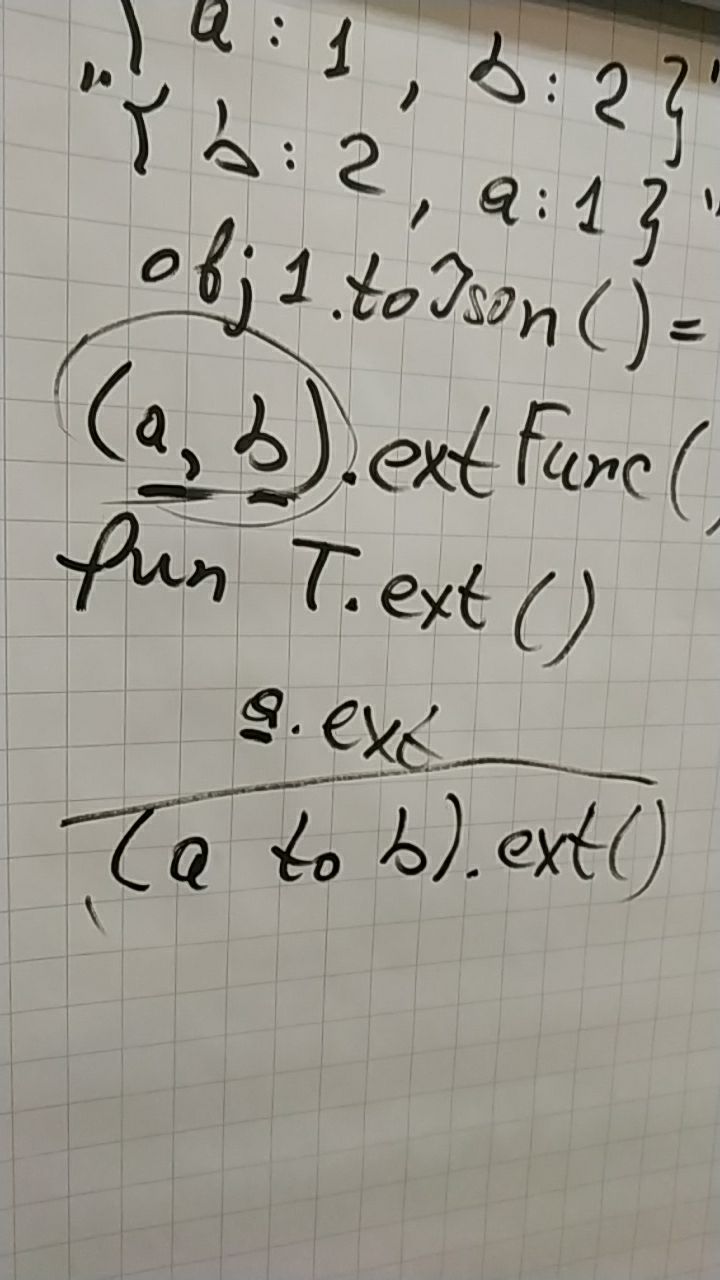 { a : 1 , b : 2 }"
"{ b : 2 , a : 1 }"
obj1.toJson() =
(a, b).extFunc(
fun T.ext()
a.ext
(a to b).ext()